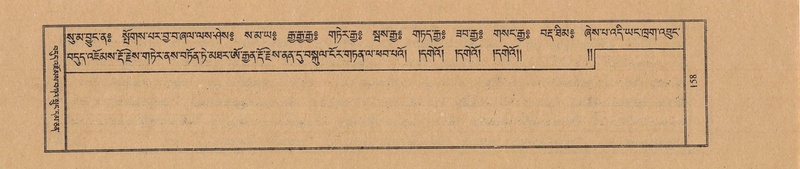 སུ་མ་བྱུང་ན༔ སྤོགས་པར་བྱ་བ་ཞལ་ལས་ཤེས༔ ས་མ་ཡ༔ རྒྱ་རྒྱ་རྒྱ༔ གཏེར་རྒྱ༔ སྦས་རྒྱ༔ གཏད་རྒྱ༔ ཟབ་རྒྱ༔ གསང་རྒྱ༔ བརྡ་ཐིམ༔ ཞེས་པ་འདི་ཡང་ཁྲག་འཐུང་
བདུད་འཇོམས་རྡོ་རྗེས་གཏེར་ནས་བཏོན་ཏེ་མཐར་ཨོ་རྒྱན་རྡོ་རྗེས་ནན་དུ་བསྐུལ་ངོར་གཏན་ལ་ཕབ་པའོ། །དགེའོ། །དགེའོ། །དགེའོ།། །།
158